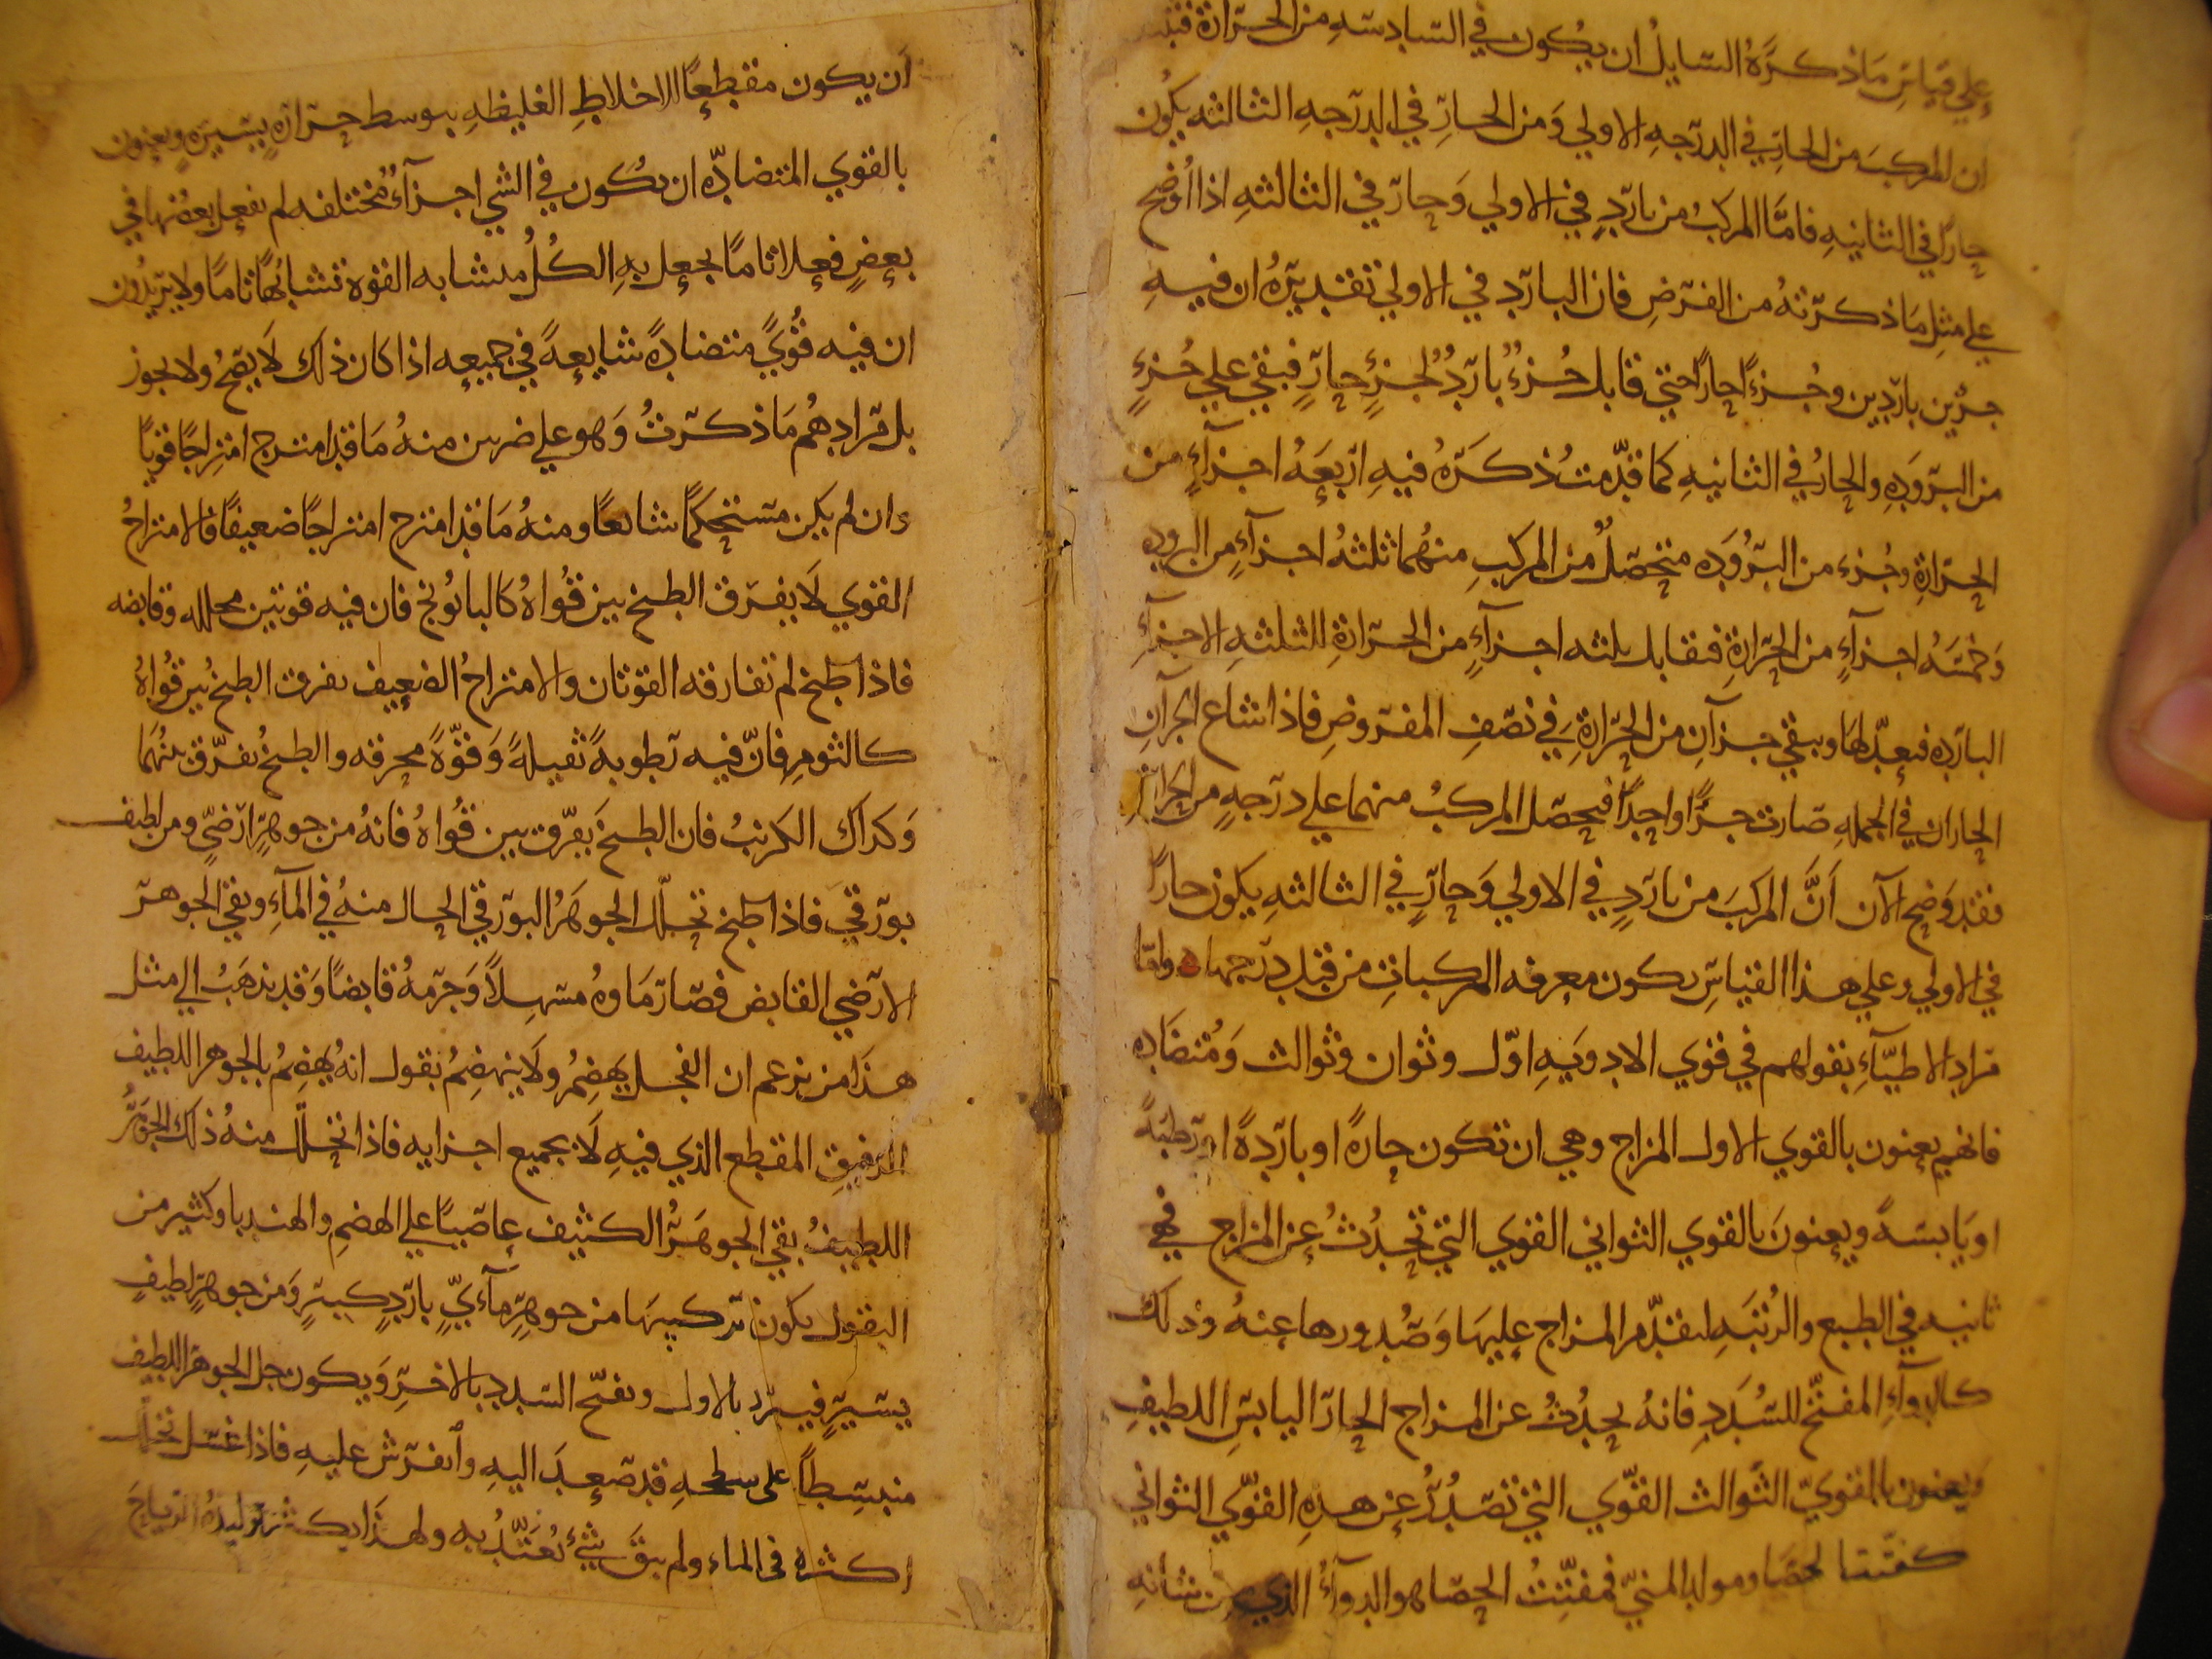 علي قياس ما ذكره السايل ان يكون في السادسه من الحرارة
ان المركب من الحار في الدرجه الاولي ومن الحار في الدرجه الثالثه يكون
حارا في الثانيه فاما المركب من بارد في الاولي وحار في الثالثه اذا اوضح
علي مثل ما ذكرته من الفرض فان البارد في الاولي تقديره ان فيه
جزين باردين وجزءا حارا حتي قابل جزء بارد لجزء حار فبقي علي جزء
من البروده والحار في الثانيه كما قدمت ذكره فيه اربعه اجزاء من
الحرارة وجزء من البروده متحصل من المركب منهما ثلثه اجزاء من البروده
وخمسه اجزاء من الحرارة فتقابل ثلثه اجزاء من الحرارة للثلثه الاجزاء
البارده فيعدلها ويبقي جزآن من الحرارة في نصف المفروض فاذا شاع الجزآن
الحاران في الجمله صارت جزءا واحدا فيحصل المركب منهما علي درجه من الحرارة
فقد وضح الآن أن المركب من بارد في الاولي وحار في الثالثه يكون حارا
في الاولي وعلي هذا القياس يكون معرفه المركبات من قبل درجها واما
مراد الاطبآء بقولهم في قوي الادويه اول وثوان وثوالث ومتضاده
فانهم يعنون بالقوي الاول المزاج وهي ان تكون حارة او باردة او رطبة
او يابسة ويعنون بالقوي الثواني القوي التي تحدث عن المزاج فهي
ثانيه في الطبع والرتبه لتقدم المزاج عليها وصدورها عنه وذلك
كالدوآء المفتح للسدد فانه يحدث عن المزاج الحار اليابس اللطيف
ويعنون بالقوي الثوالث القوي التي تصدر عن هذه القوي الثواني
كمفتت الحصا ومولد المني فمفتت الحصا هو الدوآء الذي من شانه
أن يكون مقطعا الاخلاط الغليظه بوسط حرارة يسيره ويعنون
بالقوي المتضاده ان يكون في الشي اجزآء مختلفه لم يفعل بعضها في
بعض فعلا تاما يجعل به الكل متشابه القوة تشابها تاما ولا يريدون
ان فيه قوي متضادة شايعة في جميعه اذا كان ذلك لا يصح ولا يجوز
بل مرادهم ما ذكرت وهو علي ضربين منه ما قد امتزج امتزاجا قويا
وان لم يكن مستحكما شايعا ومنه ما قد امتزج امتزاجا ضعيفا فالامتزاج
القوي لا يفرق الطبخ بين قواه كالبابونج فان فيه قوتين محلله وقابضه
فاذا طبخ لم تفارقه القوتان والامتزاج الضعيف يفرق الطبخ بين قواه
كالثوم فان فيه رطوبة ثقيلة وقوة محرقه والطبخ يفرق بينهما
وكذلك الكرنب فان الطبخ يفرق بين قواه فانه من جوهر ارضي ومن لطيف
بورقي فاذا طبخ تحلل الجوهر البورقي الحال منه في المآء وبقي الجوهر
الارضي القابض فصار ماوه مسهلا وجرمه قابضا وقد يذهب الي مثل
هذا من يزعم ان الفجل يهضم ولا ينهضم بقول انه يهضم بالجوهر اللطيف
الرقيق المقطع الذي فيه لا بجميع اجزايه فاذا تحلل منه ذلك الجوهر
اللطيف بقي الجوهر الكثيف عاصيا علي الهضم والهندبا وكثير من
البقول يكون تركيبها من جوهر مآءي بارد كبير ومن جوهر لطيف
يسير فيبرد بالاول ويفتح السدد بالاخر ويكون جل الجوهر اللطيف
منبسطا علي سطحه قد صعد اليه وانفرش عليه فاذا غسل تحلل
اكثره في الماء ولم يبق شيء يعتد به ولهذا يكثر توليده الرياح